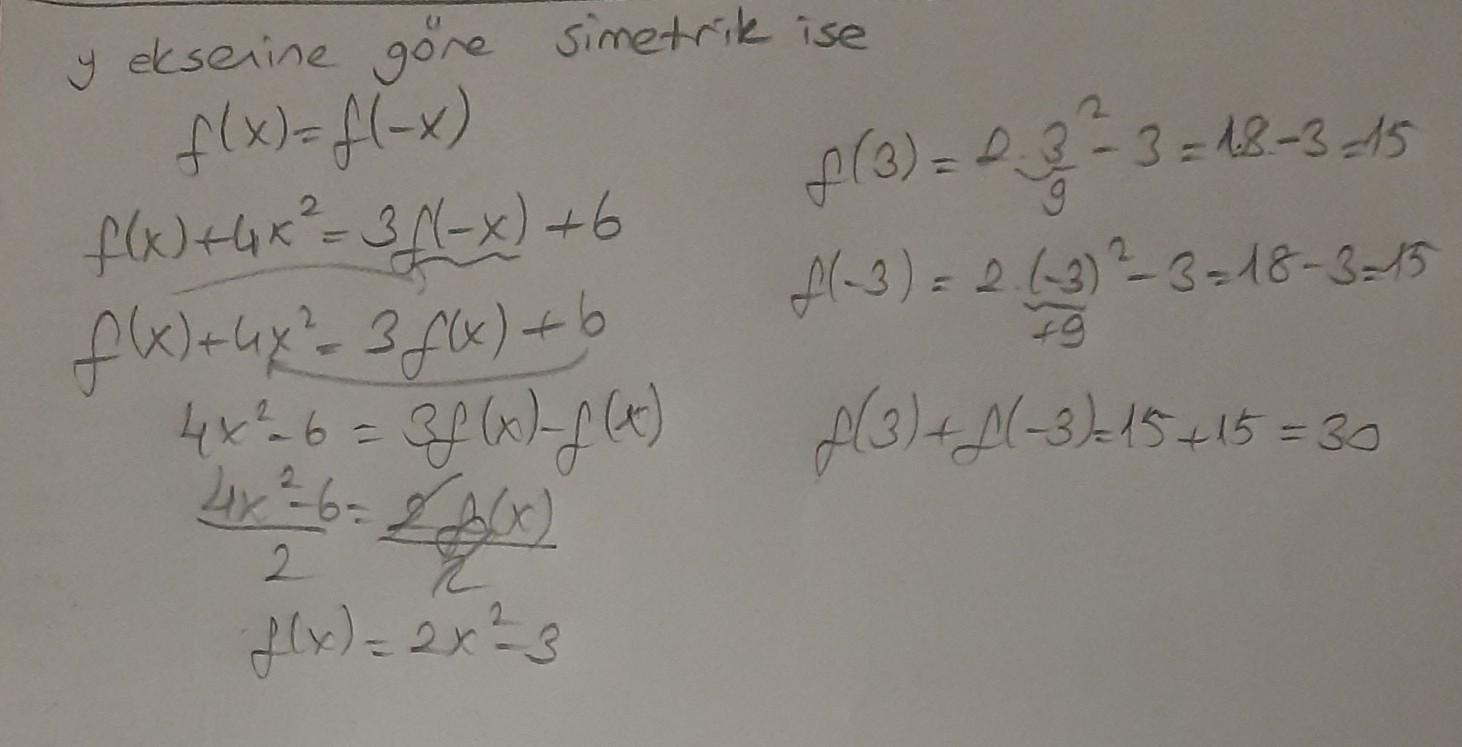 y eksenine göre simetrik ise
f(x)=f(-x)
f(x)+4x²=3f(-x)+6
f(x)+4x²=3f(x)+6
4x²-6=3f(x)-f(x)
4x²-6=2f(x)
2 2
f(x)=2x²-3
f(3)=2.3²-3=18-3=15
9
f(-3)=2.(-3)²-3=18-3=15
+9
f(3)+f(-3)=15+15=30